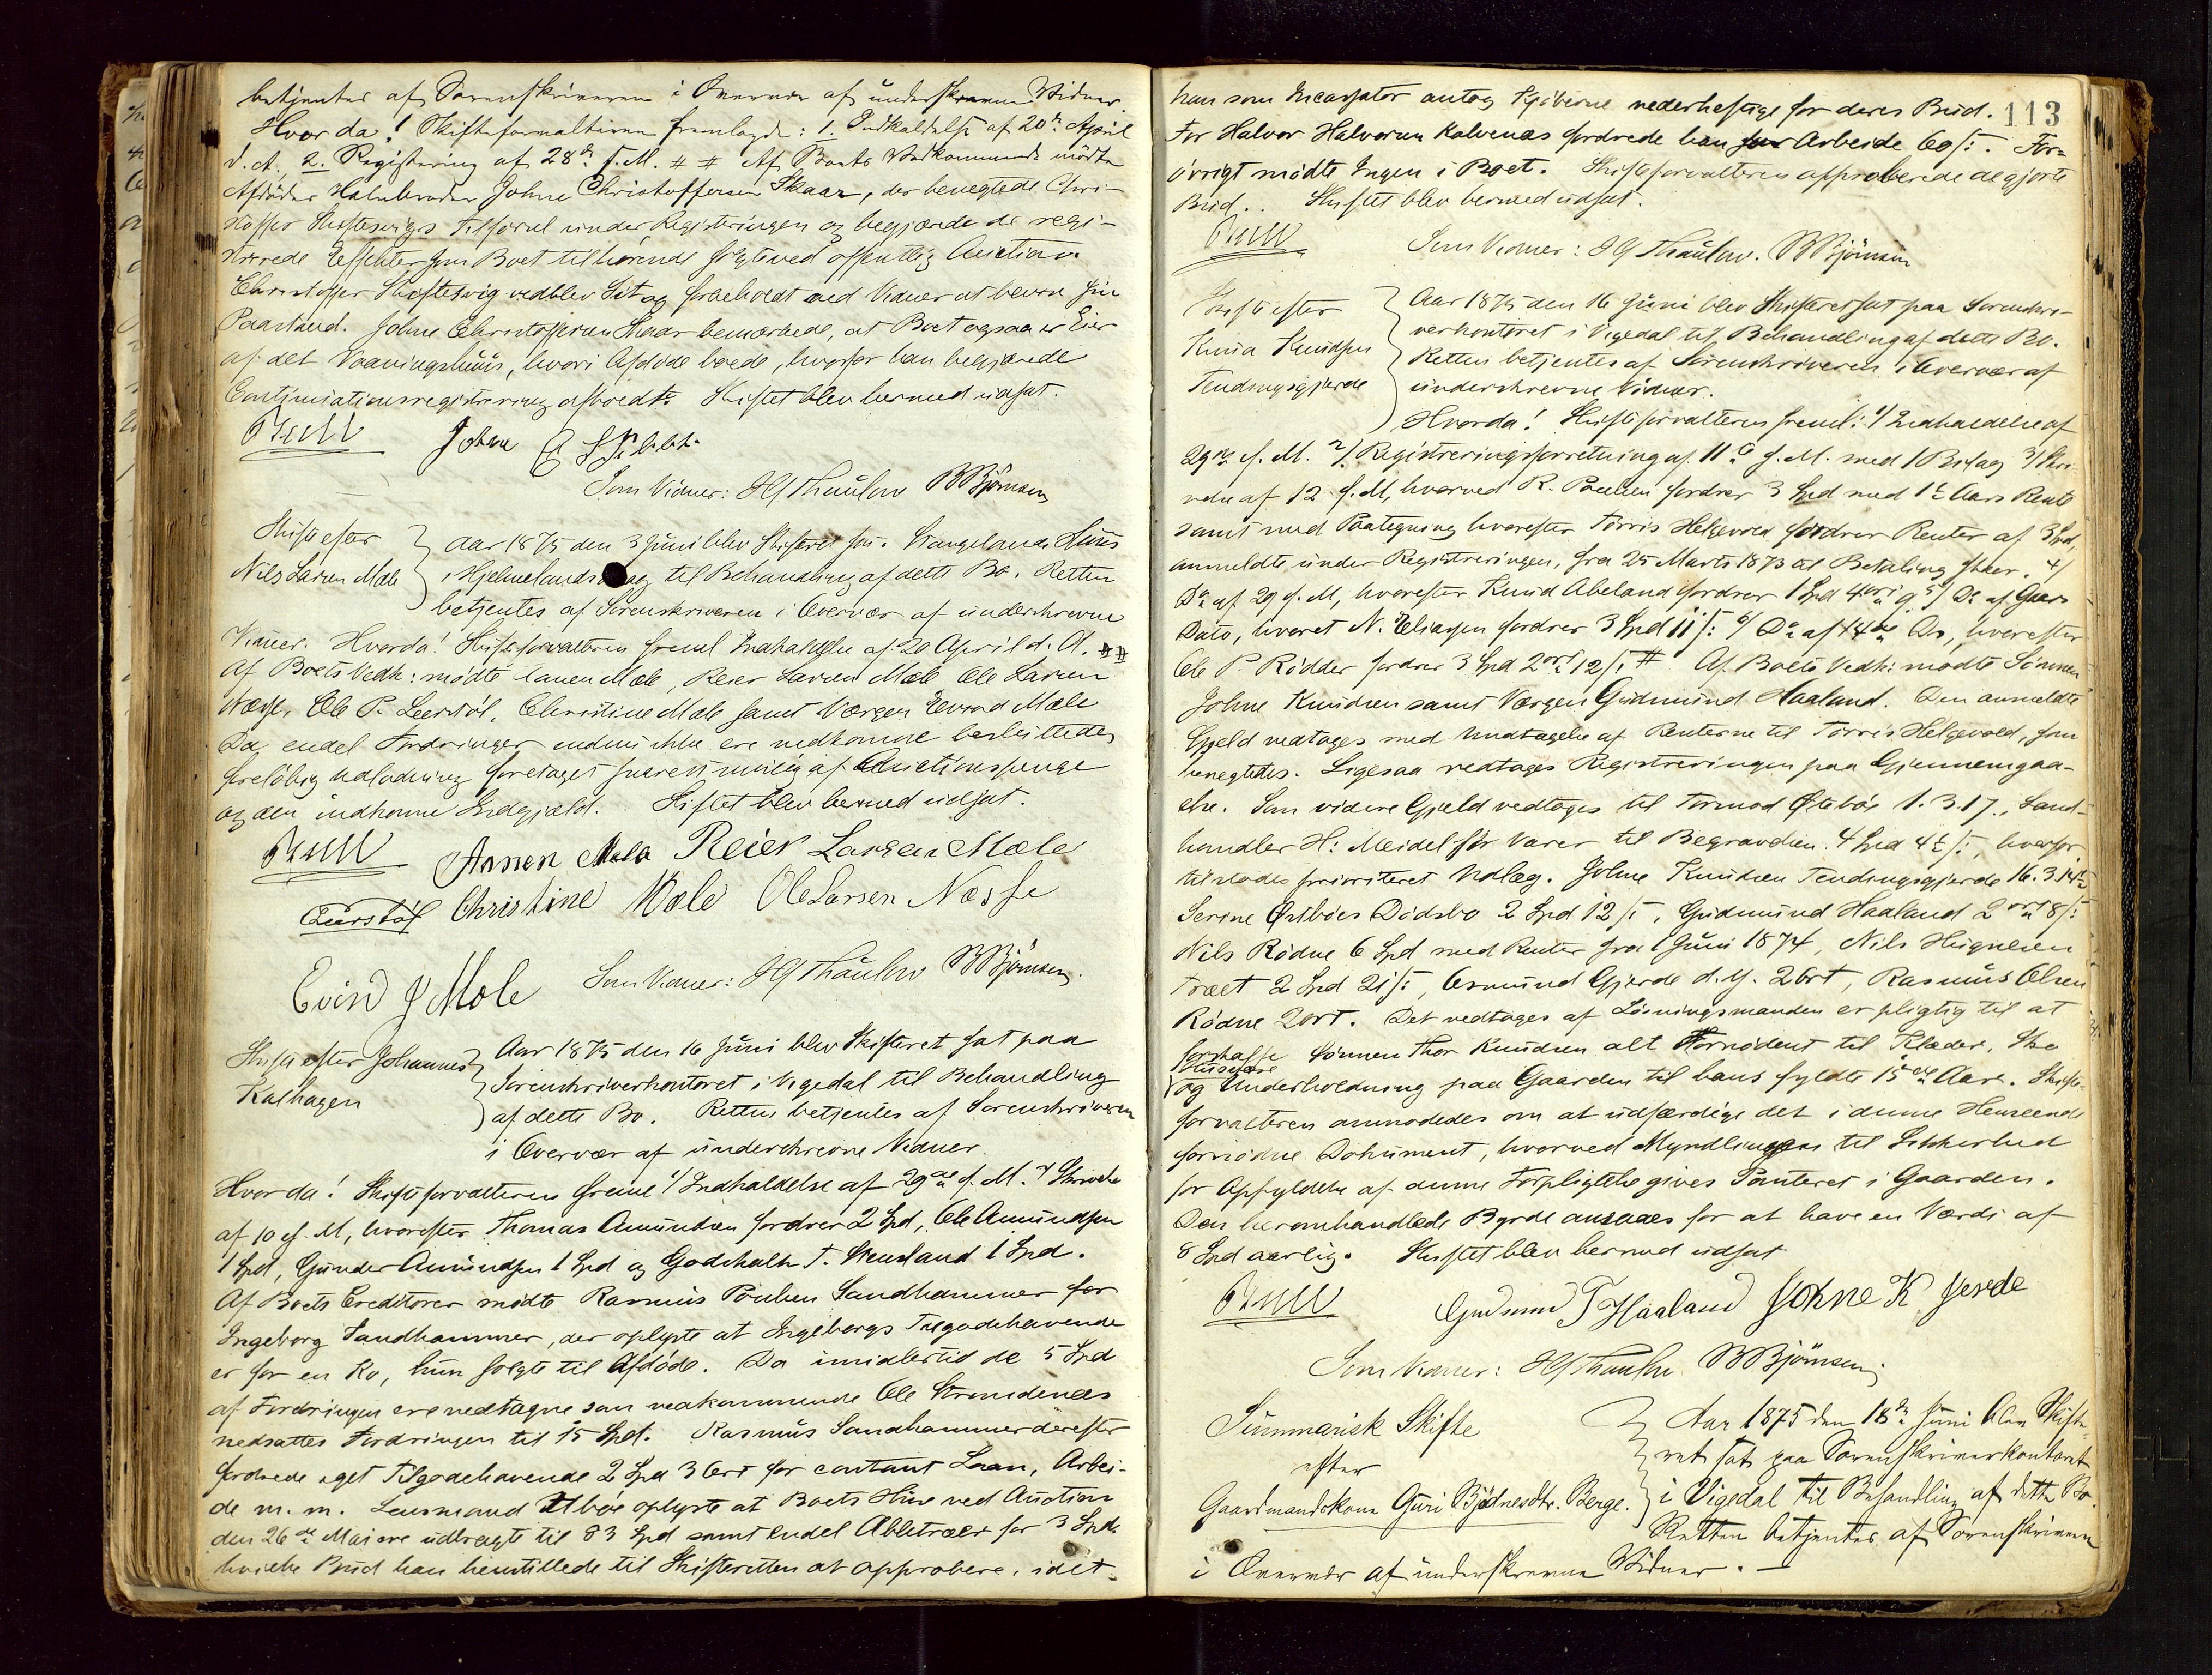 betjentes af Sorenskriveren i Overvær af underskrevne Vidner.
Hvorda! Skifteforvalteren fremlagde: 1. Indkaldelse af 20de April
d. A. 2. Registrering af 28de f. M. # # Af Boets Vedkommende mødte
Afdødes Halvbroder Johne Christoffersen Skaar, der benegtede Chri-
stoffer Skeftesvigs Tilførsel under Registreringen og begjærede de regi-
strerede Effekter som Boet tilhørende solgt ved offentlig Auction
Christoffer Skeftesvig vedblev Sit og forbeholdt ved Vidner at bevise sin
Paastand. Johne Christoffersen Skaar bemærkede, at Boet ogsaa er Eier
af det Vaaningshuus, hvori Afdøde boede, hvorfor han begjærede
Continuationsregistrering afholdt. Skiftet blev hermed udsat.
Johne C S
Som Vidner: HG Thaulow BBjörnsen
Skifte efter
Nils Larsen Mæle
Aar 1875 den 3 Juni blev Skifteret sat i Vangelands Huus
i Hjelmelands til Behandling af dette Bo. Retten
betjentes af Sorenskriveren i Overvær af underskrevne
Vidner. Hvorda! Skifteforvalteren freml Indkaldelse af 20 April d. A. # #
Af Boets Vedk: mødte Mæle, Reier Larsen Mæle Ole Larsen
Næsse, Ole P. Leerstøl, Christine Mæle samt Værgen Eivind Mæle
Da endel Fordringer endnu ikke ere nedkomne besluttedes
foreløbig Udlodning foretaget snarest mulig af Auctionspenge
og den indkomne Indgjæld. Skiftet blev hermed udsat.
Mæle Reier Larsen Mæle
Leerstøl Christine Mæle Ole Larsen Næsse
Evind J Mæle Som Vidner: HG Thaulow BBjörnsen.
Skifte efter Johannes
Kalhagen
Aar 1875 den 16 Juni blev Skifteret sat paa
Sorenskriverkontoret i Vigedal til Behandling
af dette Bo. Retten betjentes af Sorenskriveren
i Overvær af underskrevne Vidner.
Hvorda! Skifteforvalteren freml 1/ Indkaldelse af 29de f. M. 2/ Skrivelse
af 10 f. M, hvorefter Thomas Amundsen fordrer 2 Spd, Ole Amundsen
1 Spd, Gunder Amundsen 1 Spd og Godskalk T. 1 Spd.
Af Boets Creditorer mødte Rasmus Poulsen Sandhammer for
Ingeborg Sandhammer, der oplyste at Ingeborgs Tilgodehavende
er for en Ko, hun solgte til Afdøde. Da imidlertid de 5 Spd
af Fordringen ere vedtagne som vedkommende Ole
nedsattes Fordringen til 15 Spd. Rasmus Sandhammer derefter
fordrede eget Tilgodehavende 2 Spd 3 Ort for contant Laan, Arbei-
de m. m. Lensmand Østbøe oplyste at Boets Huse ved Auction
den 26de Mai ere udbragte til 83 Spd samt endel Abletræer for 3 Spd.
hvilke Bud han henstillede til Skifteretten at approbere, idet
113
han som Incassator antog Kjøberne vederheftige for deres Bud.
For Halvor Halvorsen Kalvenæs fordrede han for Arbeide 60 s. For-
øvrigt mødte Ingen i Boet. Skifteforvalteren approberede de gjorte
Bud. Skiftet blev hermed udsat.
Som Vidner: HG Thaulow. BBjörnsen
Skifte efter
Knud Knudsen
Tendingsgjerde
Aar 1875 den 16 Juni blev Skifteret sat paa Sorenskri-
verkontoret i Vigedal til Behandling af dette Bo.
Retten betjentes af Sorenskriveren i Overvær af
underskrevne Vidner.
Hvorda! Skifteforvalteren freml: 1/ Indkaldelse af
29de f. M. 2/. Registreringsforretning af 11te f. M. med 1 Bilag 3/ Skri-
velse af 12 f. M, hvorved R. Poulsen fordrer 3 Spd med 1t Aars Rente
samt med Paategning hvorefter Torris Helgevold fordrer Renter af 3 Spd,
anmeldte under Registreringen, fra 25 Marts 1873 til Betaling skeer. 4/
Do af 29 f. M, hvorefter Knud Abeland fordrer 1 Spd 4 ort 9 s 5/ Do af Gaars
Dato, hvoret N. Eliassen fordrer 3 Spd 11 s: 6/ Do af 14de Ds, hvorefter
Ole P. Rødder fordrer 3 Spd 2 ort 12 s: # Af Boets Vedk: mødte Sønnen
Johne Knudsen samt Værgen Gudmund Haaland. Den anmeldte
Gjeld vedtages med Undtagelse af Renterne til Torris Helgevold, som
benegtedes. Ligesaa vedtages Registreringen paa Gjennemgaa-
else. Som videre Gjeld vedtages til Tormod Østebøe 1. 3. 17., Land-
handler H: Meidell for Varer til Begravelsen 4 Spd 4 s:, hvorfor
tilstodes prioriteret Udlæg. Johne Knudsen Tendingsgjerde 16. 3. 14
Serine Østbøes Dødsbo 2 Spd 12 s:, Gudmund Haaland 2 ort 8 s:
Nils Rødne 6 Spd med Renter fra 1 Juni 1874, Nils
Træet 2 Spd 21 s:, Osmund Gjerde d. y. 2 Ort, Rasmus Olsen
Rødne 2 ort. Det vedtages af Løsningsmanden er pligtig til at
forskaffe Sønnen Thor Knudsen alt Fornødent til Klæder, Sko
Husvære
og Underholdning paa Gaarden til hans fyldte 15de Aar. Skifte-
forvalteren anmodedes om at udfærdige det i denne Henseende
fornødne Dokument, hvorved Myndlingen til Sikkerhed
for Opfyldelse af denne Forpligtelse gives Panteret i Gaarden.
Den heromhandlede Byrde ansaaes for at have en Værdi af
8 Spd aarlig. Skiftet blev hermed udsat
Gudmund T Haaland Johne K Jerde
Som Vidner: HG Thaulow BBjörnsen.
Summarisk Skifte
efter
Gaardmandskone Guri Bjødnesdtr. Berge.
Aar 1875 den 18de Juni blev Skifte-
ret sat paa Sorenskriverkontoret
i Vigedal til Behandling af dette Bo.
Retten betjentes af Sorenskriveren
i Overvær af underskrevne Vidner. —